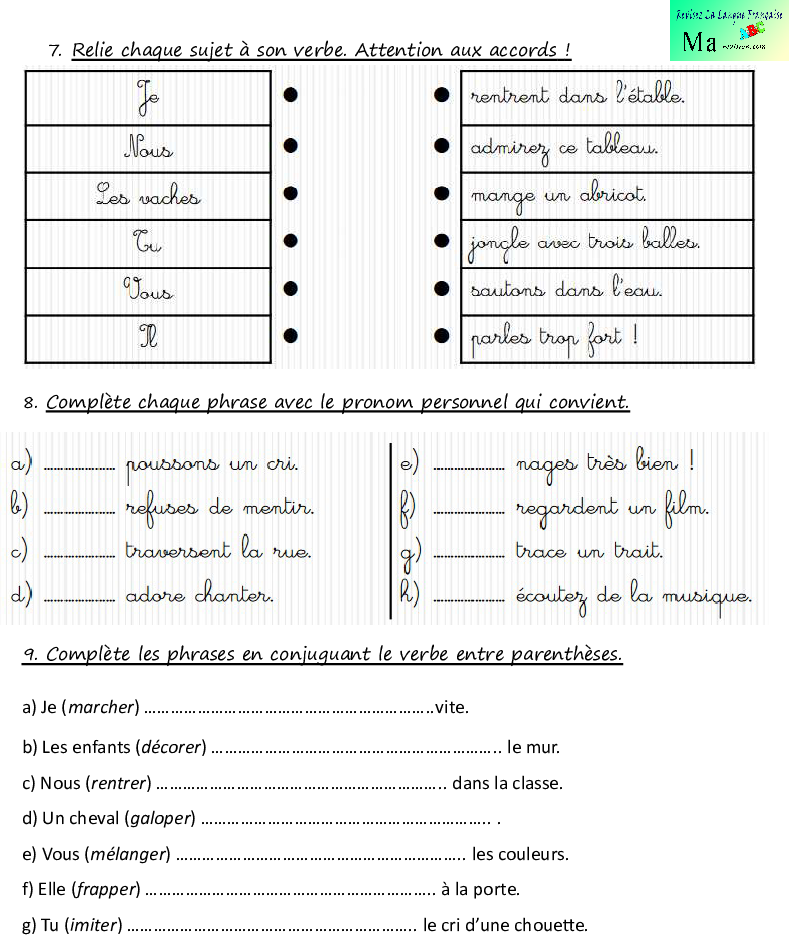 Revisez La Langue Française
Ma
7. Relie chaque sujet à son verbe. Attention aux accords !
Je ● ● rentrent dans l'étable.
Nous ● ● admirez ce tableau.
Les vaches ● ● mange un abricot.
Tu ● ● jongle avec trois balles.
Vous ● ● sautons dans l'eau.
Il ● ● parles trop fort !
8. Complète chaque phrase avec le pronom personnel qui convient.
a) .................... poussons un cri.
b) .................... refuses de mentir.
c) .................... traversent la rue.
d) .................... adore chanter.
e) .................... nages très bien !
f) .................... regardent un film.
g) .................... trace un trait.
h) .................... écoutez de la musique.
9. Complète les phrases en conjuguant le verbe entre parenthèses.
a) Je (marcher) ………………………………………………………..vite.
b) Les enfants (décorer) ……………………………………………………….. le mur.
c) Nous (rentrer) ……………………………………………………….. dans la classe.
d) Un cheval (galoper) ……………………………………………………….. .
e) Vous (mélanger) ……………………………………………………….. les couleurs.
f) Elle (frapper) ……………………………………………………….. à la porte.
g) Tu (imiter) ……………………………………………………….. le cri d’une chouette.